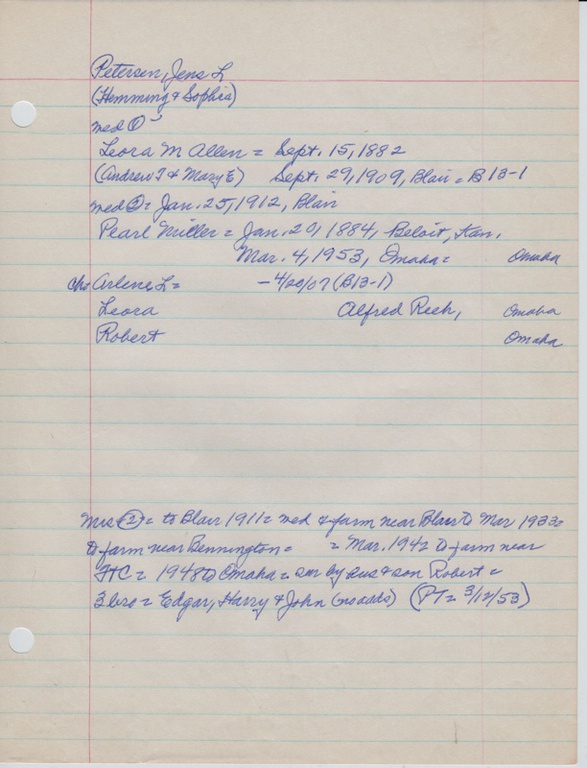 Petersen, Jens L
(Hemming & Sophia)
med ①
Leora M Allen = Sept. 15, 1882
(Andrew J & Mary E) Sept. 29, 1909, Blair = B 13-1
med ② = Jan. 25, 1912, Blair
Pearl Miller = Jan. 20, 1884, Beloit, Kan.
Mar. 4, 1953, Omaha = Omaha
chs Arlene L = - 4/20/07 (B13-1)
Leora Alfred Reeh, Omaha
Robert Omaha
Mrs ② = to Blair 1911 = med & farm near Blair to Mar 1933 =
to farm near Bennington = = Mar. 1942 to farm near
FtC = 1948 to Omaha = sur by sus & son Robert =
3 bro = Edgar, Harry & John (no adds) (PT = 3/12/53)